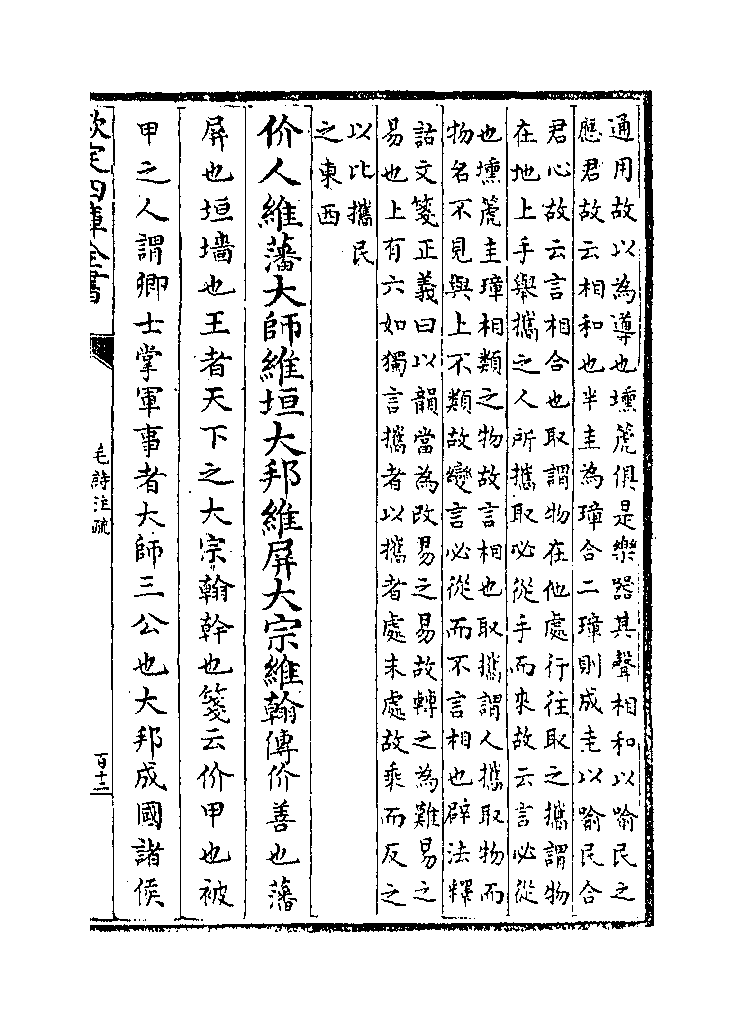 通用故以為導也壎箎俱是樂器其聲相和以喻民之
應君故云相和也半圭為璋合二璋則成圭以喻民合
君心故云言相合也取謂物在他處行往取之攜謂物
在地上手舉攜之人所攜取必從手而來故云言必從
也壎箎圭璋相類之物故言相也取攜謂人攜取物而
物名不見與上不類故變言必從而不言相也辟法釋
詁文箋正義曰以韻當為改易之易故轉之為難易之
易也上有六如獨言攜者以攜者處末處故乘而反之
以比攜民
之東西
价人維藩大師維垣大邦維屏大宗維翰傳价善也藩
屏也垣墻也王者天下之大宗翰幹也箋云价甲也被
甲之人謂卿士掌軍事者大師三公也大邦成國諸侯
欽定四庫全書
毛詩注疏
百十二